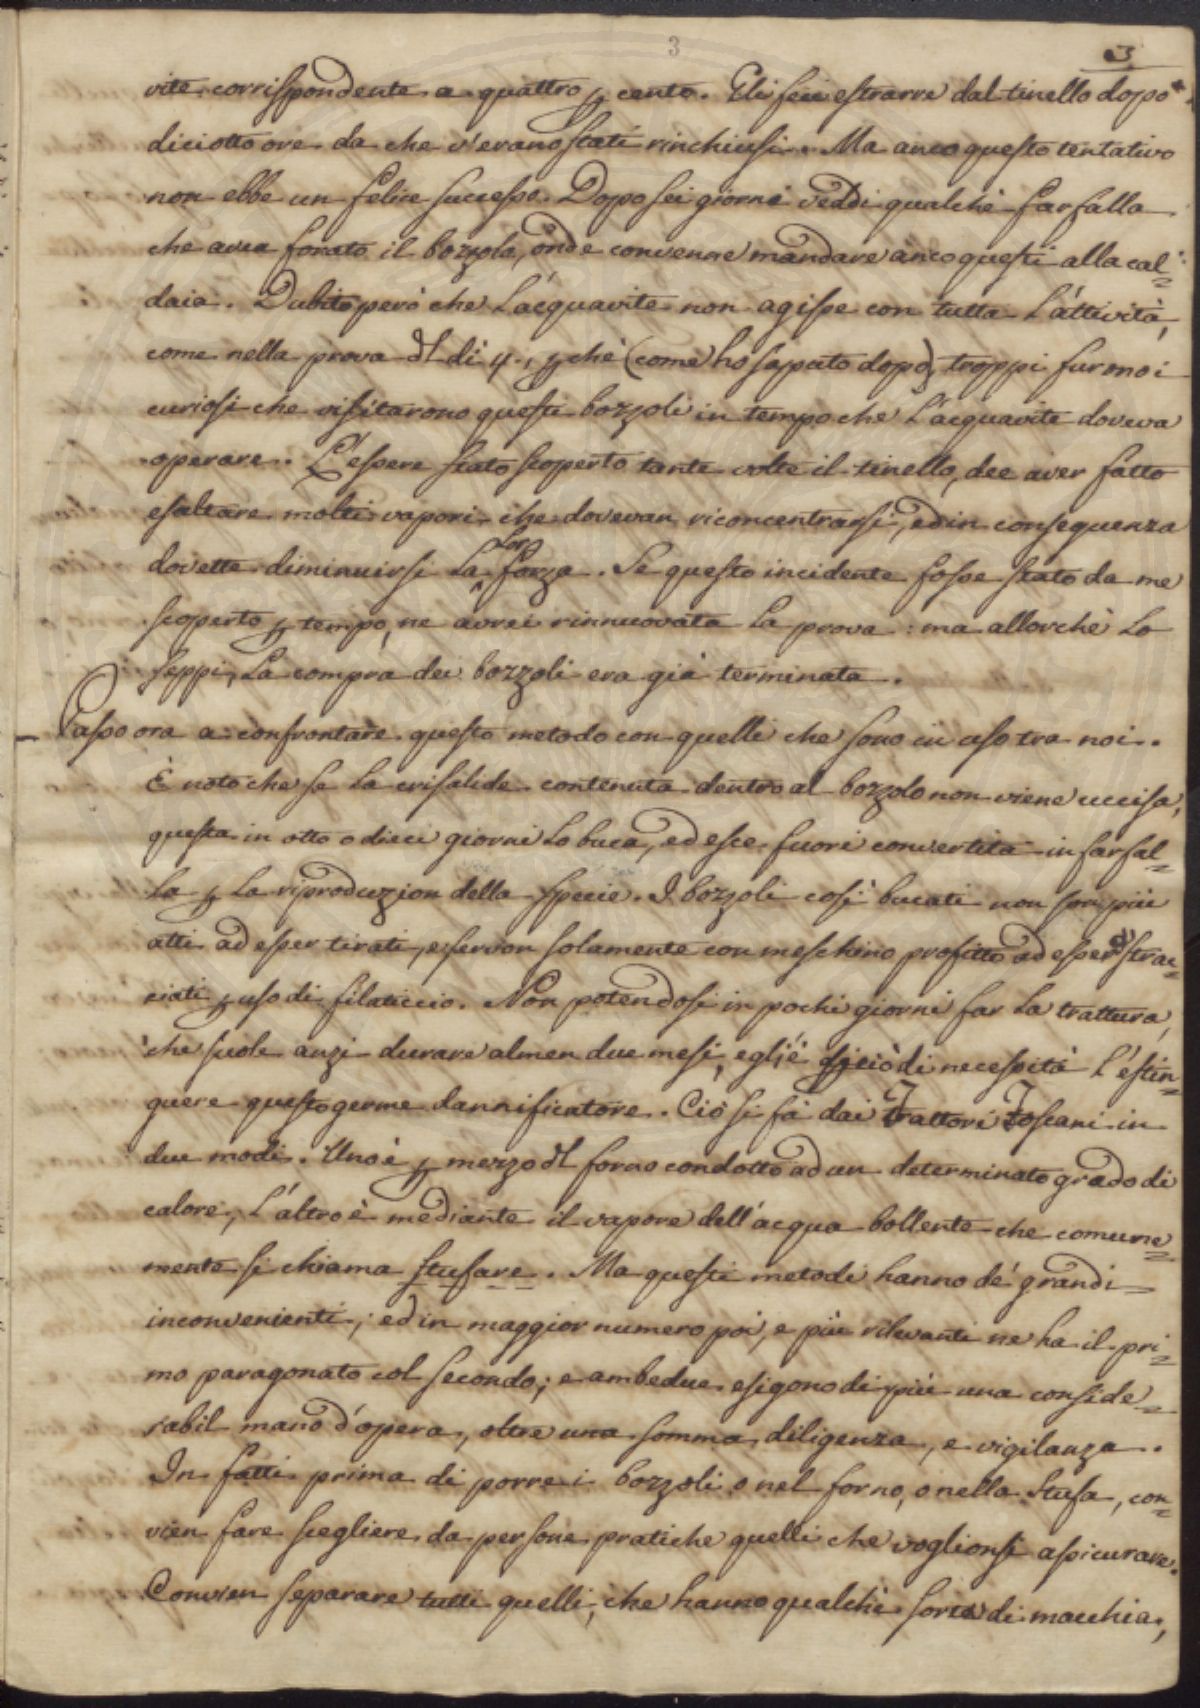 3
3
vite corrispondente a quattro p cento. Gli feci estrarre dal tinello dopo
diciotto ore da che v'erano stati rinchiusi. Ma anco questo tentativo
non ebbe un felice successo. Dopo sei giorni veddi qualche farfalla
che avea forato il bozzolo, onde convenne mandare anco questi alla cal=
daia. Dubito però che l'acquavite non agisse con tutta l'attività,
come nella prova dl dì 4., p chè (come ho saputo dopo) troppi furono i
curiosi che visitarono questi bozzoli in tempo che l'acquavite doveva
operare. L'essere stato scoperto tante volte il tinello, dee aver fatto
esaltare molti vapori che dovevan riconcentrarsi, ed in conseguenza
dovette diminuirsi la lor forza. Se questo incidente fosse stato da me
scoperto p tempo, ne avrei rinnuovata la prova: ma allorchè lo
seppi, la compra dei bozzoli era già terminata.
Passo ora a confrontare questo metodo con quelli che sono in uso tra noi.
È noto che se la crisalide contenuta dentro al bozzolo non viene uccisa,
questa in otto o dieci giorni lo buca, ed esce fuori convertita in farfal=
la p la riproduzion della specie. I bozzoli così bucati non son più
atti ad esser tirati, e servon solamente con meschino profitto ad esser strac=
ciati p uso di filaticcio. Non potendosi in pochi giorni far la trattura,
che suole anzi durare almen due mesi, egli è p ciò di necessità l'estin=
guere questo germe dannificatore. Ciò si fà dai Trattori Toscani in
due modi. Uno è p mezzo dl forno condotto ad un determinato grado di
calore, l'altro è mediante il vapore dell'acqua bollente che comune=
mente si chiama stufare. Ma questi metodi hanno de' grandi
inconvenienti; ed in maggior numero poi, e più rilevanti ne ha il pri=
mo paragonato col secondo; e ambedue esigono di più una conside=
rabil mano d'opera, oltre una somma diligenza, e vigilanza.
In fatti prima di porre i bozzoli o nel forno, o nella stufa, con=
vien fare scegliere da persone pratiche quelli che voglionsi assicurare.
Convien separare tutti quelli, che hanno qualche sorta di macchia,